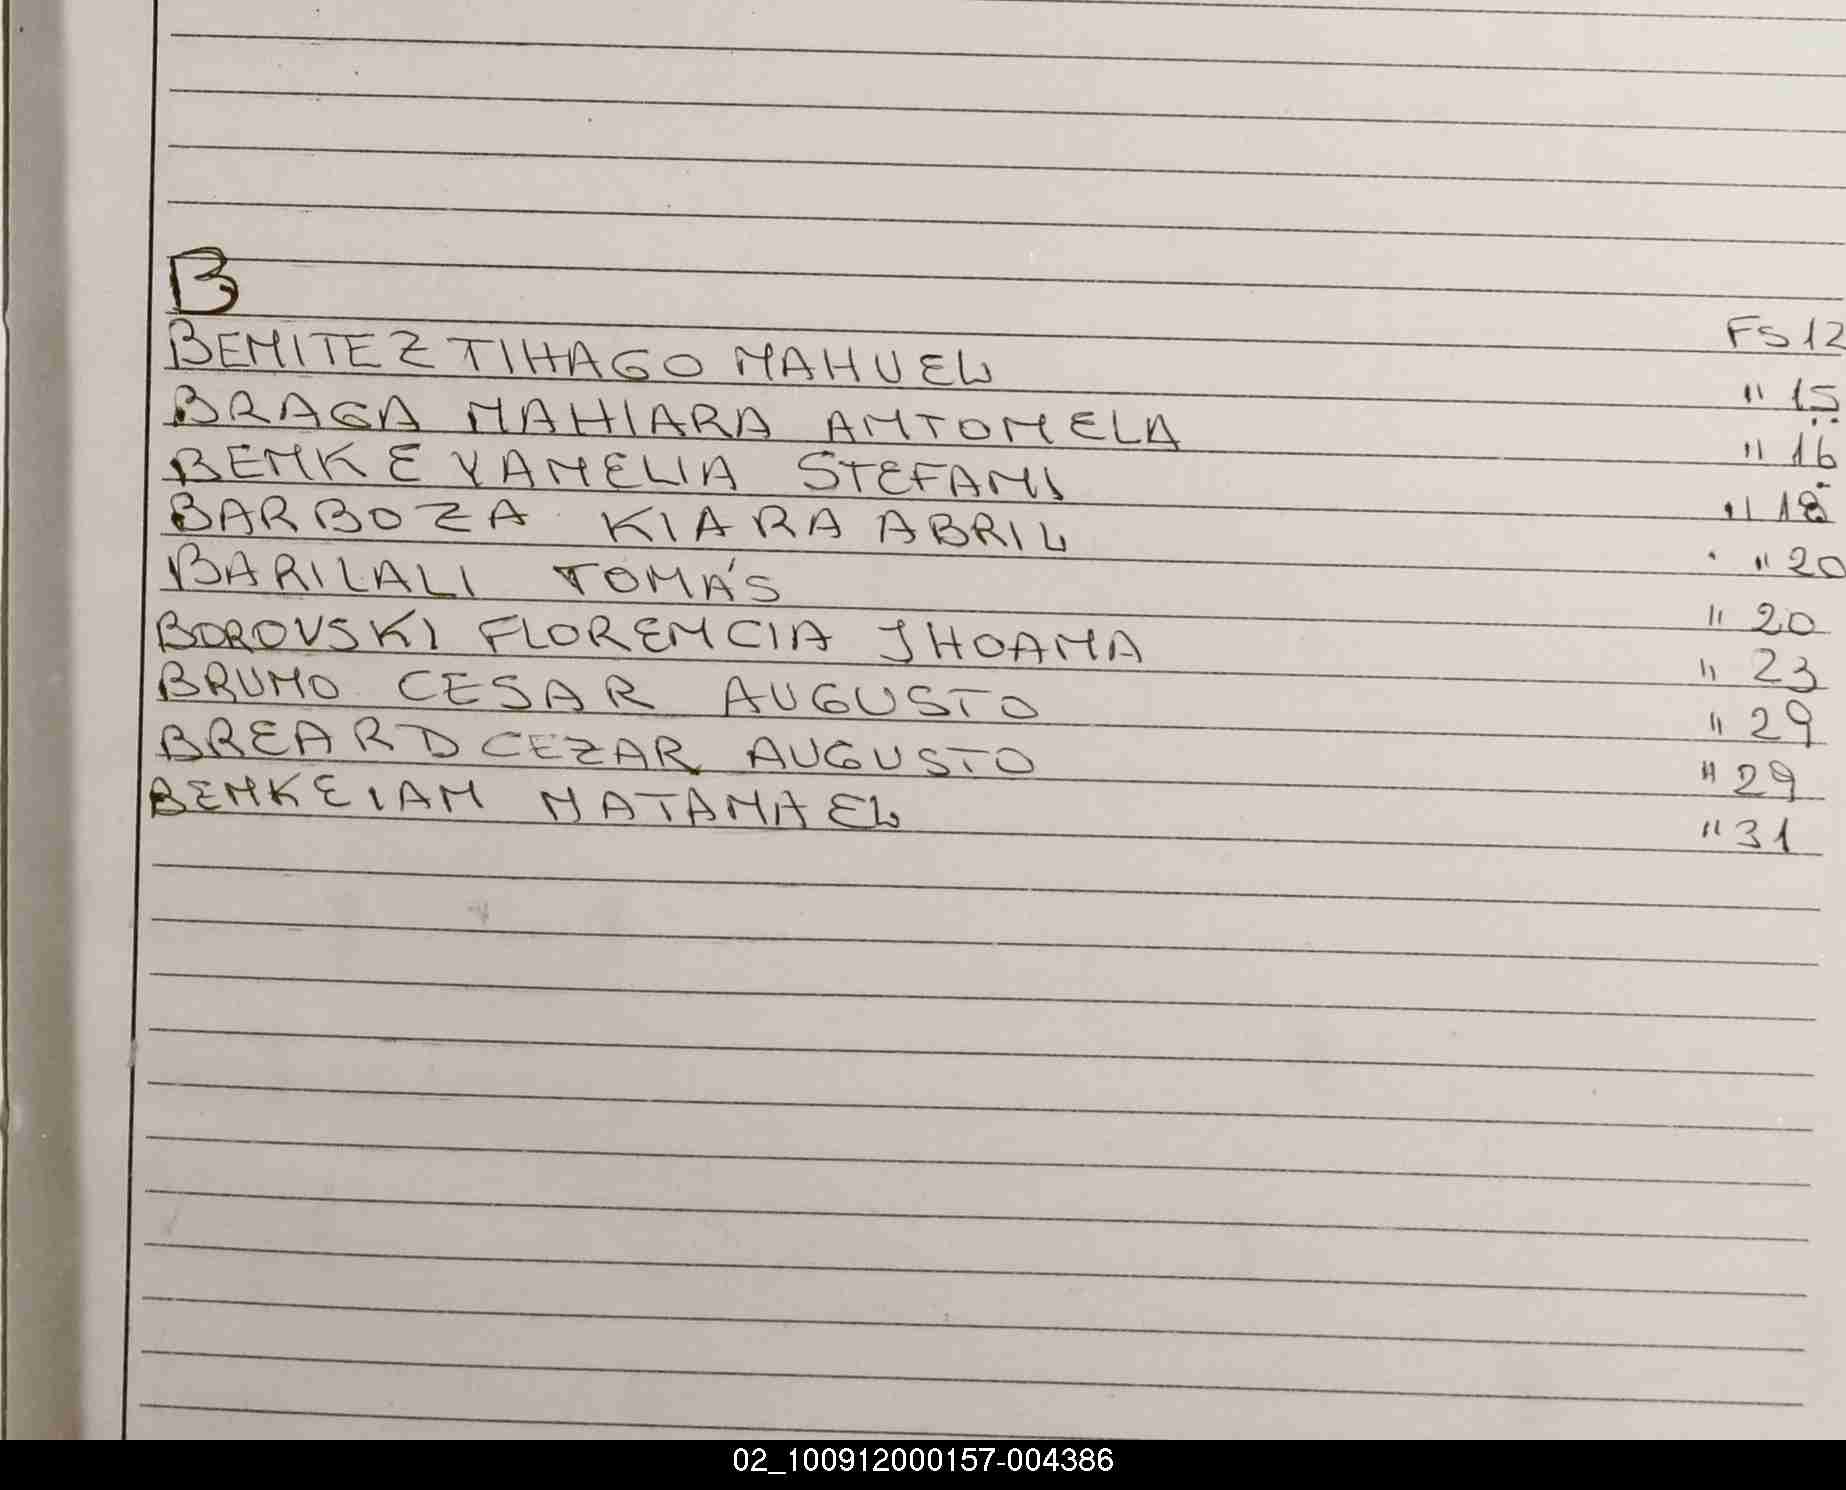 B
BENITEZ TIHAGO NAHUEL FS 12
BRAGA NAHIARA ANTONELA " 15
BENKE YANELIA STEFANI " 16
BARBOZA KIARA ABRIL " 18
BARILALI TOMÁS " 20
BOROVSKI FLORENCIA JHOANA " 20
BRUNO CESAR AUGUSTO " 23
BREARD CEZAR AUGUSTO " 29
BENKE IAN NATANAEL " 29
" 31
02_100912000157-004386